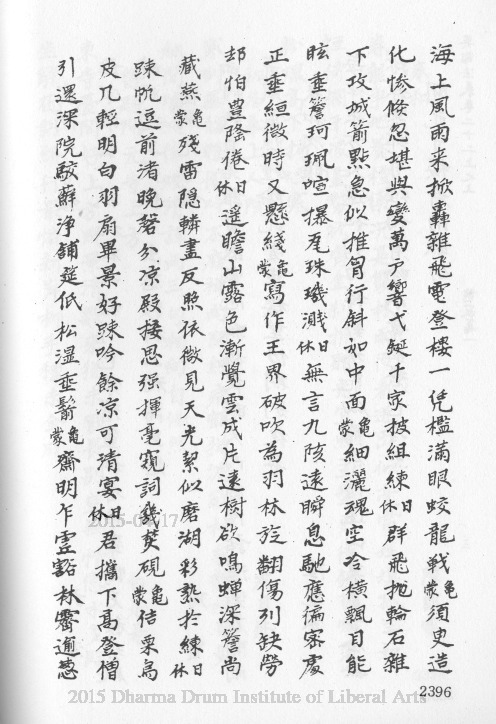 海上風雨来掀轟雜飛電登樓一凭檻滿眼蛟龍戰龜蒙須臾造
化慘倏忽堪輿變萬戶響戈鋋千家披組練日休群飛抛輪石雜
下攻城箭點急似推胷行斜如中面龜蒙細灑魂空冷橫飄目能
眩垂簷珂珮喧㩧瓦珠璣濺日休無言九陔遠瞬息馳應徧密處
正垂絙微時又懸綫龜蒙寫作玉界破吹為羽林旋翻傷列缺勞
却怕豊隆倦日休遥瞻山露色漸覺雲成片遠樹欲鳴蟬深簷尚
藏燕龜蒙殘雷隱轔盡反照依微見天光絜似磨湖彩熟於練日休
踈帆逗前渚晚磬分凉殿接思强揮毫窺詞幾焚硯龜蒙佶栗烏
皮几輕明白羽扇畢景好踈吟餘凉可清宴日休君攜下高登僧
引還深院駮蘚淨鋪筵低松湿垂鬋龜蒙齋明乍虚豁林霽逾葱
2396
2015-04-17
2015 Dharma Drum Institute of Liberal Arts